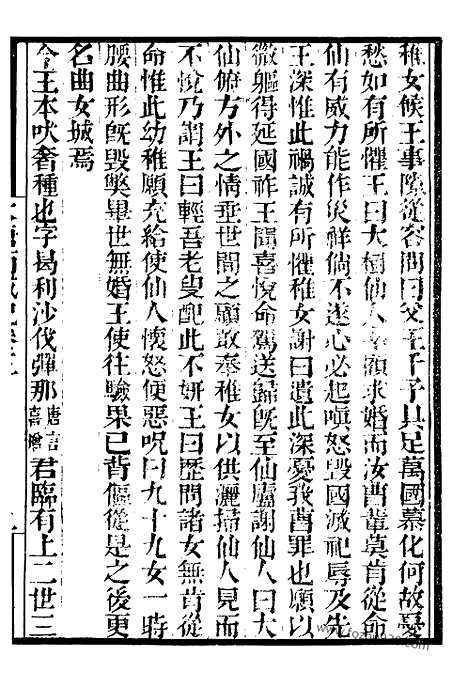 稚女候王事隙從容問曰父王千子具足萬國慕化何故憂
愁如有所懼王曰大樹仙人幸顧求婚而汝曹輩莫肯從命
仙有威力能作災祥倘不遂心必起嗔怒毀國滅祀辱及先
王深惟此禍誠有所懼稚女謝曰遺此深憂我曹罪也願以
微軀得延國祚王聞喜悅命駕送歸既至仙廬謝仙人曰大
仙俯方外之情垂世間之顧敢奉稚女以供灑掃仙人見而
不悅乃謂王曰輕吾老叟配此不妍王曰歷問諸女無肯從
命惟此幼稚願充給使仙人懷怒便惡呪曰九十九女一時
腰曲形既毀弊畢世無婚王使往驗果已背傴從是之後更
名曲女城焉
今王本吠奢種也字曷利沙伐彈那唐言喜增君臨有土二世三